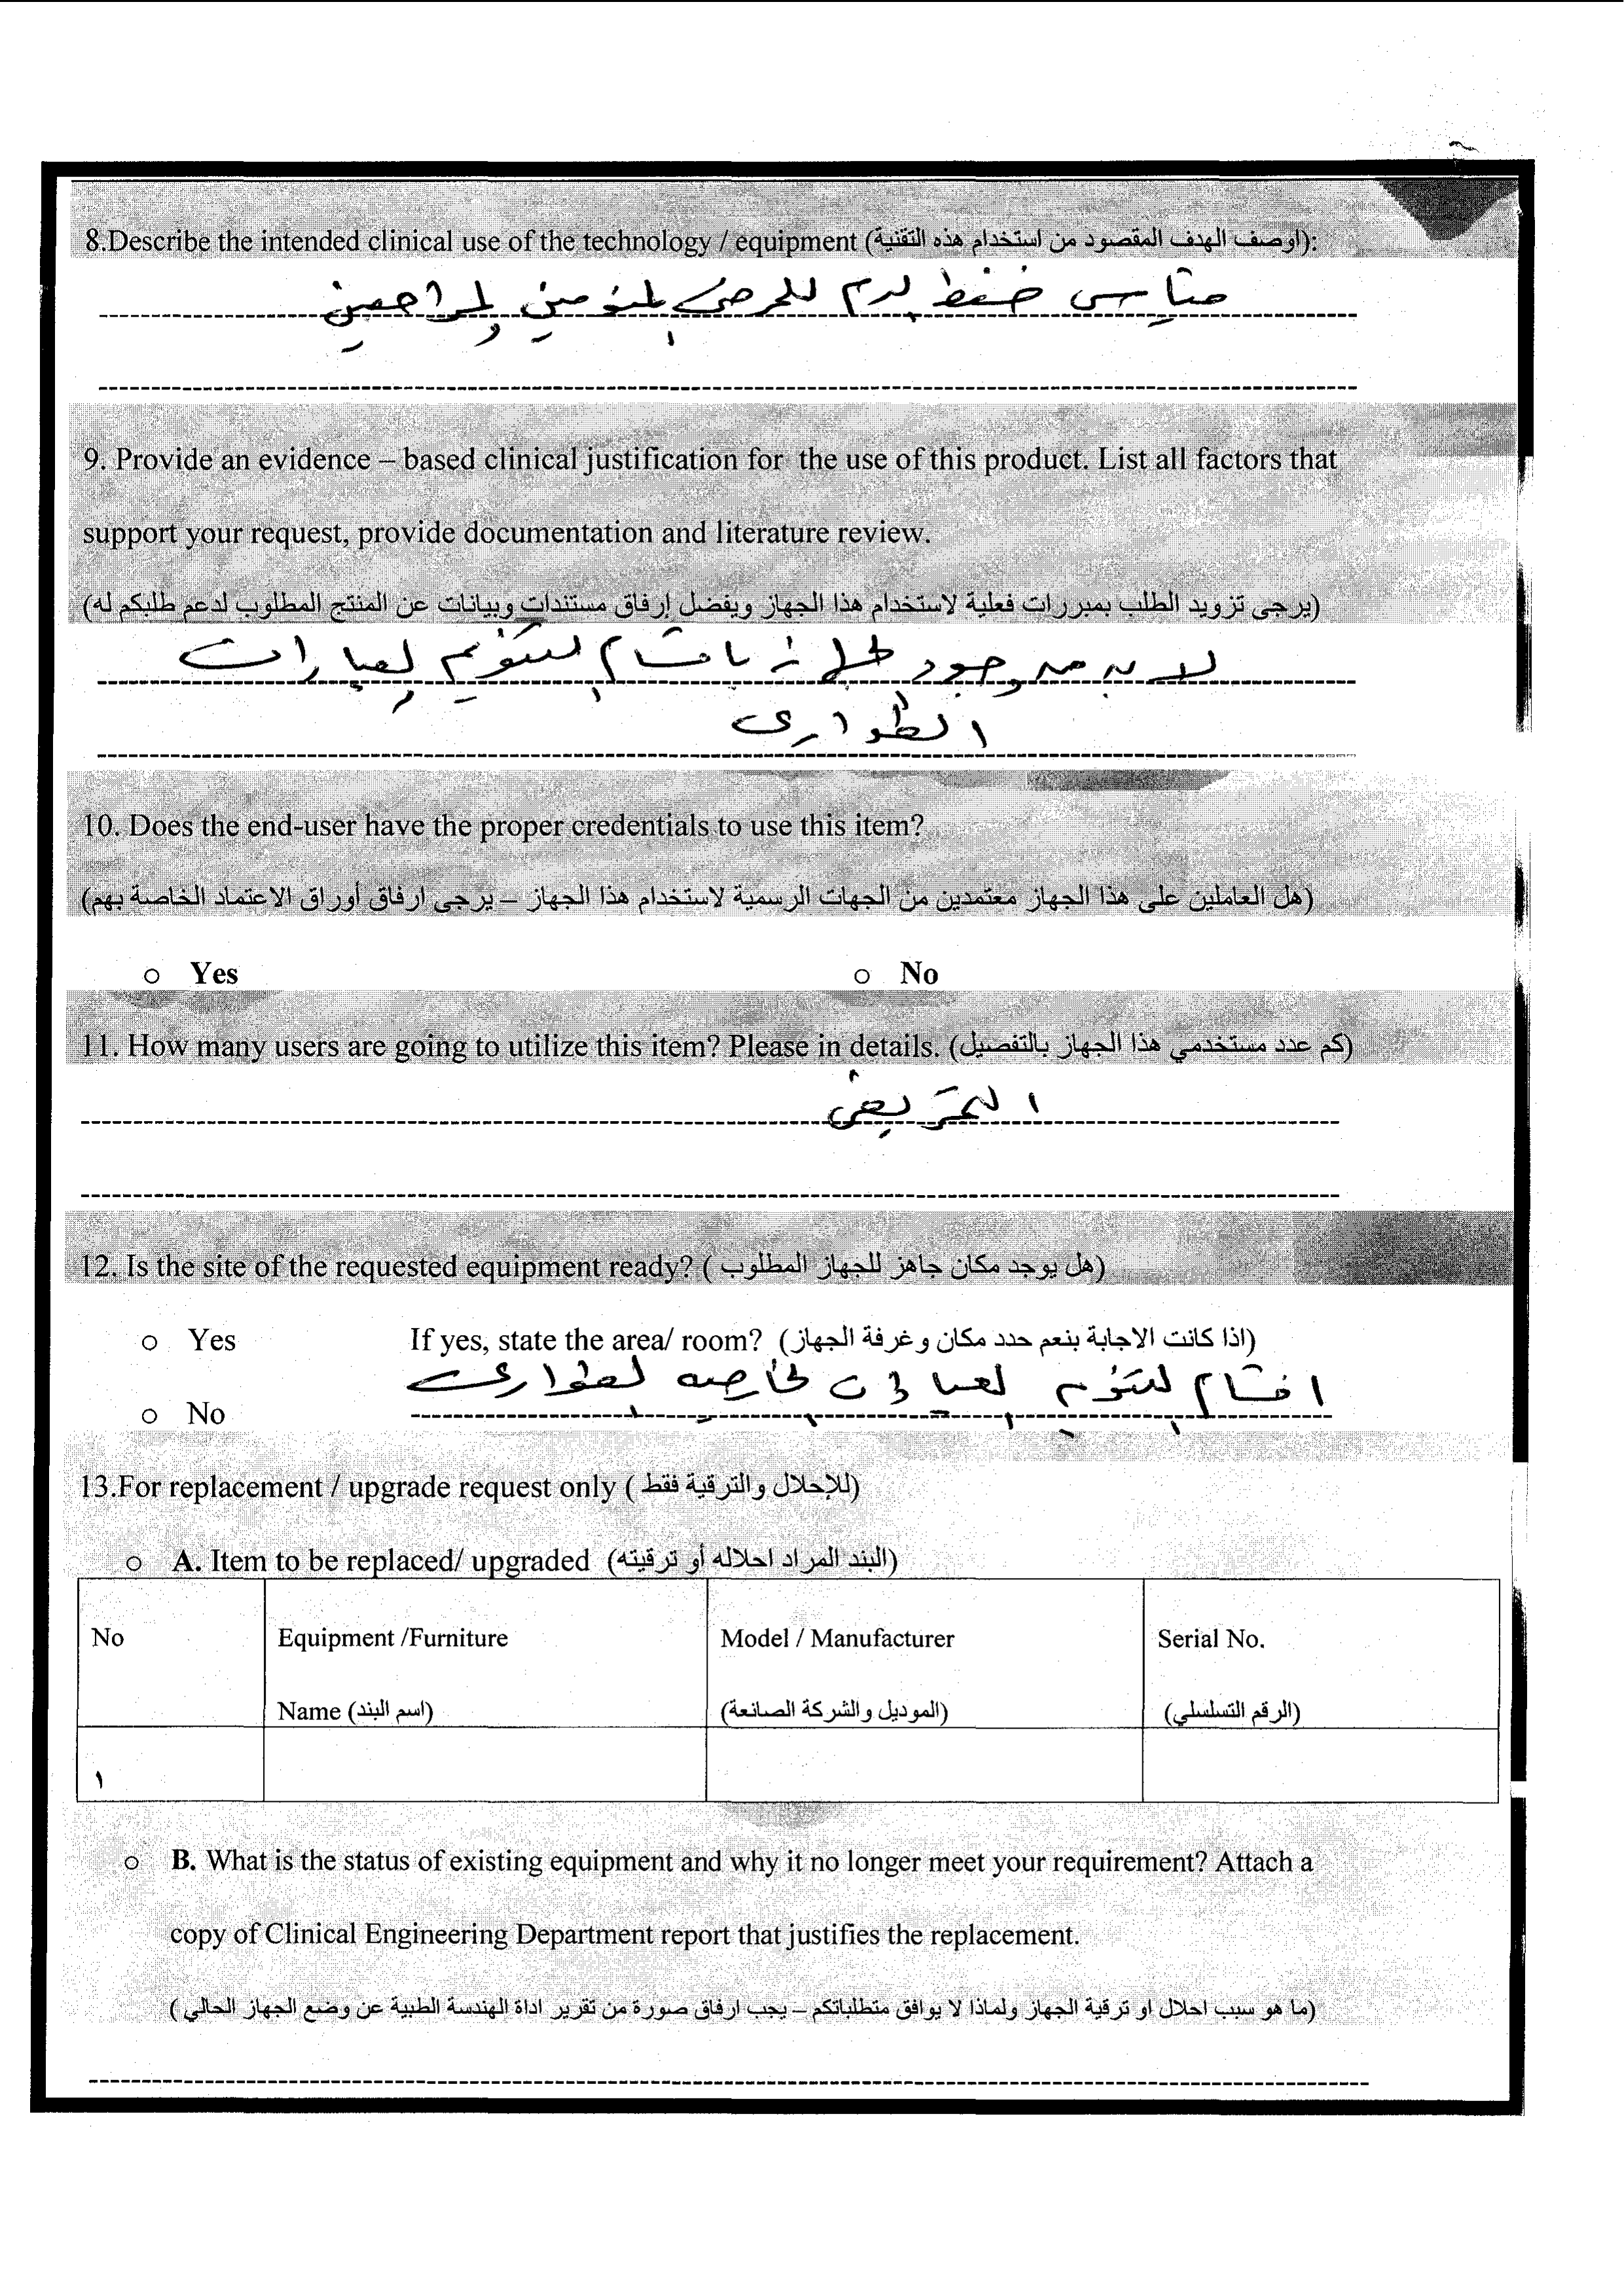 8.Describe the intended clinical use of the technology / equipment (اوصف الهدف المقصود من استخدام هذه التقنية):
ضغط الدم للمرضى المنومين والمراجعين
9. Provide an evidence – based clinical justification for the use of this product. List all factors that
support your request, provide documentation and literature review.
(يرجى تزويد الطلب بمبررات فعلية لاستخدام هذا الجهاز ويفضل إرفاق مستندات وبيانات عن المنتج المطلوب لدعم طلبكم له)
لابد من وجود باقسام التنويم والعيادات
الطوارى
10. Does the end-user have the proper credentials to use this item?
(هل العاملين على هذا الجهاز معتمدين من الجهات الرسمية لاستخدام هذا الجهاز – يرجى ارفاق أوراق الاعتماد الخاصة بهم)
o Yes o No
11. How many users are going to utilize this item? Please in details. (كم عدد مستخدمي هذا الجهاز بالتفصيل)
التمريض
12. Is the site of the requested equipment ready? ( هل يوجد مكان جاهز للجهاز المطلوب)
o Yes If yes, state the area/ room? (اذا كانت الاجابة بنعم حدد مكان وغرفة الجهاز)
o No اقسام التنويم العيادات الخارجيه الطوارى
13.For replacement / upgrade request only ( للإحلال والترقية فقط)
o A. Item to be replaced/ upgraded (البند المراد احلاله أو ترقيته)
No Equipment /Furniture Model / Manufacturer Serial No.
Name (اسم البند) (الموديل والشركة الصانعة) (الرقم التسلسلي)
١
o B. What is the status of existing equipment and why it no longer meet your requirement? Attach a
copy of Clinical Engineering Department report that justifies the replacement.
(ما هو سبب احلال او ترقية الجهاز ولماذا لا يوافق متطلباتكم – يجب ارفاق صورة من تقرير اداة الهندسة الطبية عن وضع الجهاز الحالي )